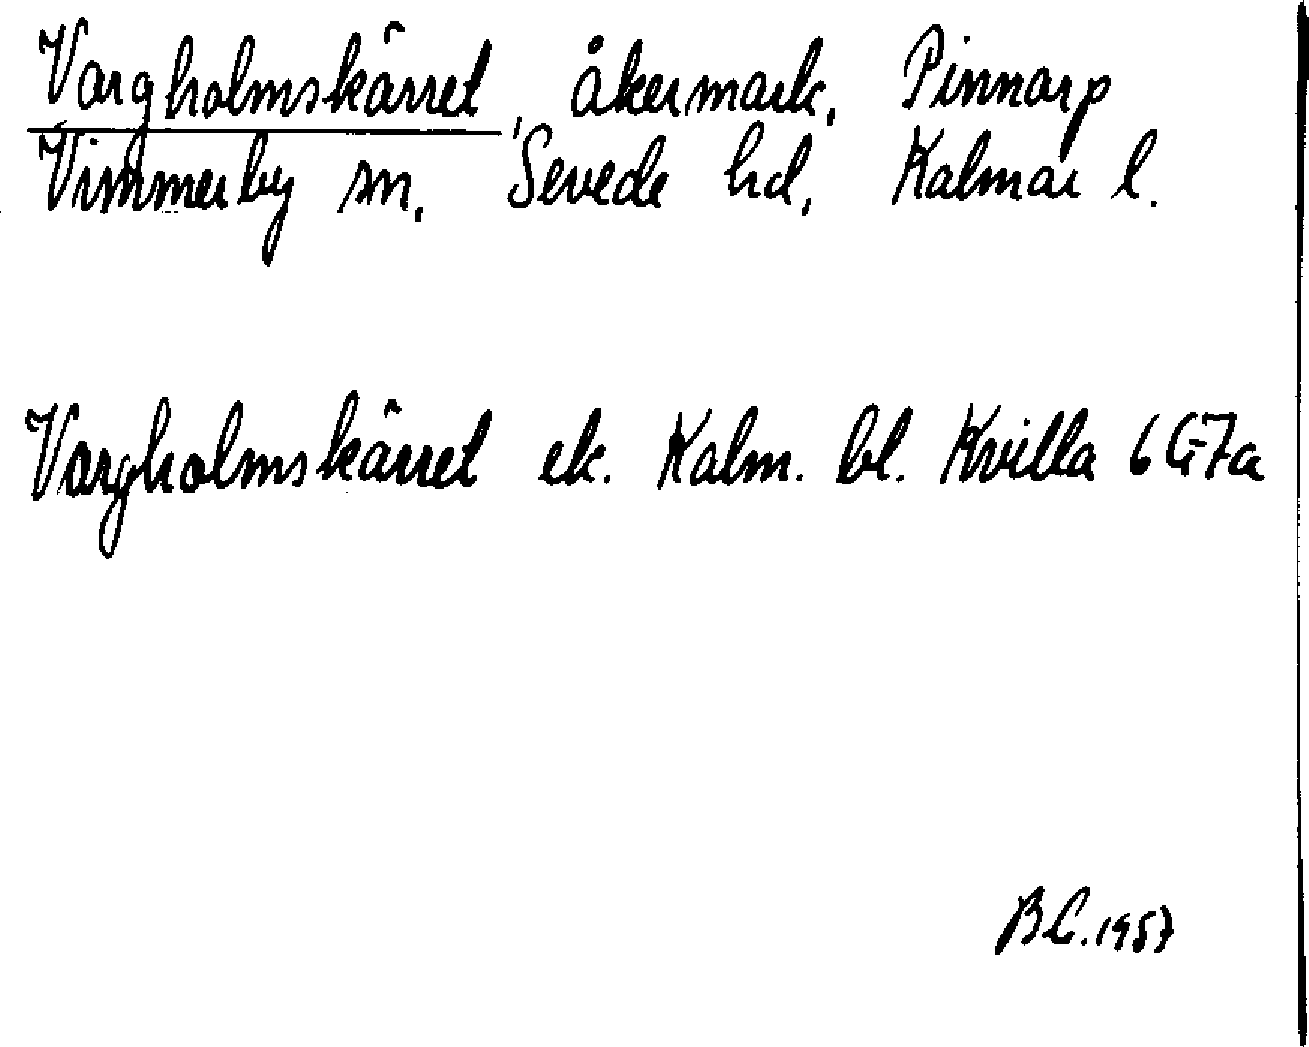 Vargholmskärret, åkermark, Pinnarp
Vimmerby sn, Sevede hd, Kalmar l.
Vargholmskärret ek. Kalm. bl. Kvilla 6G7a
BC. 1957